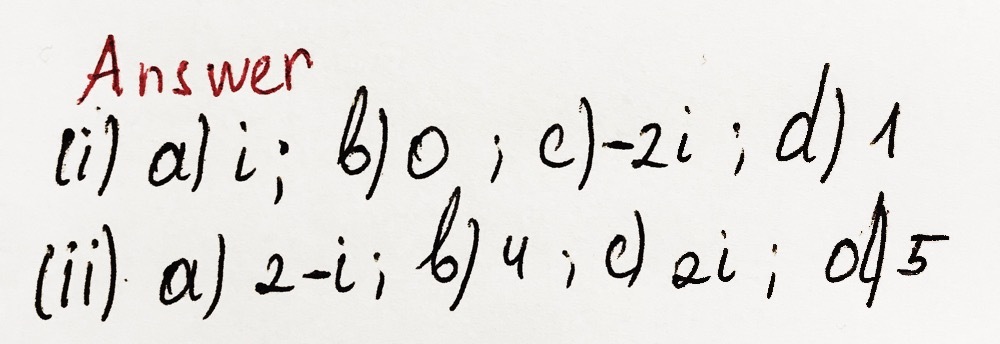 Answer
(i) a) i; b) 0 ; c) -2i ; d) 1
(ii) a) 2-i; b) 4 ; c) 2i ; d) 5